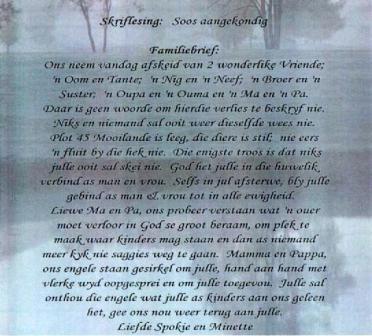 Skriflesing: Soos aangekondig
Familiebrief:
Ons neem vandag afskeid van 2 wonderlike Vriende;
'n Oom en Tante; 'n Nig en 'n Neef; 'n Broer en 'n
Suster; 'n Oupa en 'n Ouma en 'n Ma en 'n Pa.
Daar is geen woorde om hierdie verlies te beskryf nie.
Niks en niemand sal ooit weer dieselfde wees nie.
Plot 45 Mooilande is leeg, die diere is stil; nie eers
'n fluit by die hek nie. Die enigste troos is dat niks
julle ooit sal skei nie. God het julle in die huwelik
verbind as man en vrou. Selfs in jul afsterwe, bly julle
gebind as man & vrou tot in alle ewigheid.
Liewe Ma en Pa, ons probeer verstaan wat 'n ouer
moet verloor in God se groot beraam, om plek te
maak waar kinders mag staan en dan as niemand
meer kyk nie saggies weg te gaan. Mamma en Pappa,
ons engele staan gesirkel om julle, hand aan hand met
vlerke wyd oopgesprei en om julle toegevou. Julle sal
onthou die engele wat julle as kinders aan ons geleen
het, gee ons nou weer terug aan julle.
Liefde Spokie en Minette